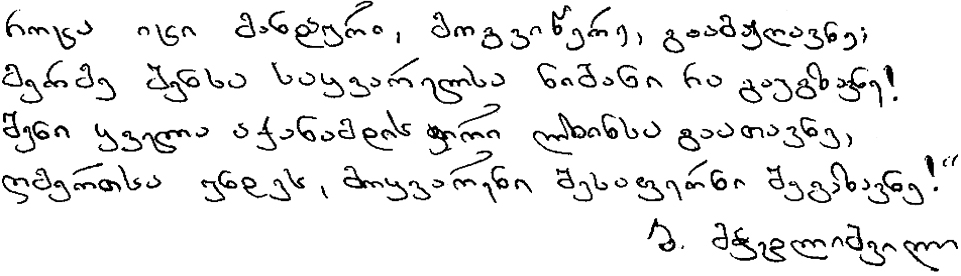 როცა იცი მანდაური, მოგვიწერე, გაამჟღავნე;
მერმე შენსა საყვარელსა ნიშანი რა გაუგზავნე!
შენი ყველა აქანამდის ჭირი ლხინსა გაათავნე,
ღმერთსა უნდეს, მოყვარენი შესაფერნი შეგაზავნე!“
ბ. მჭედლიშვილი